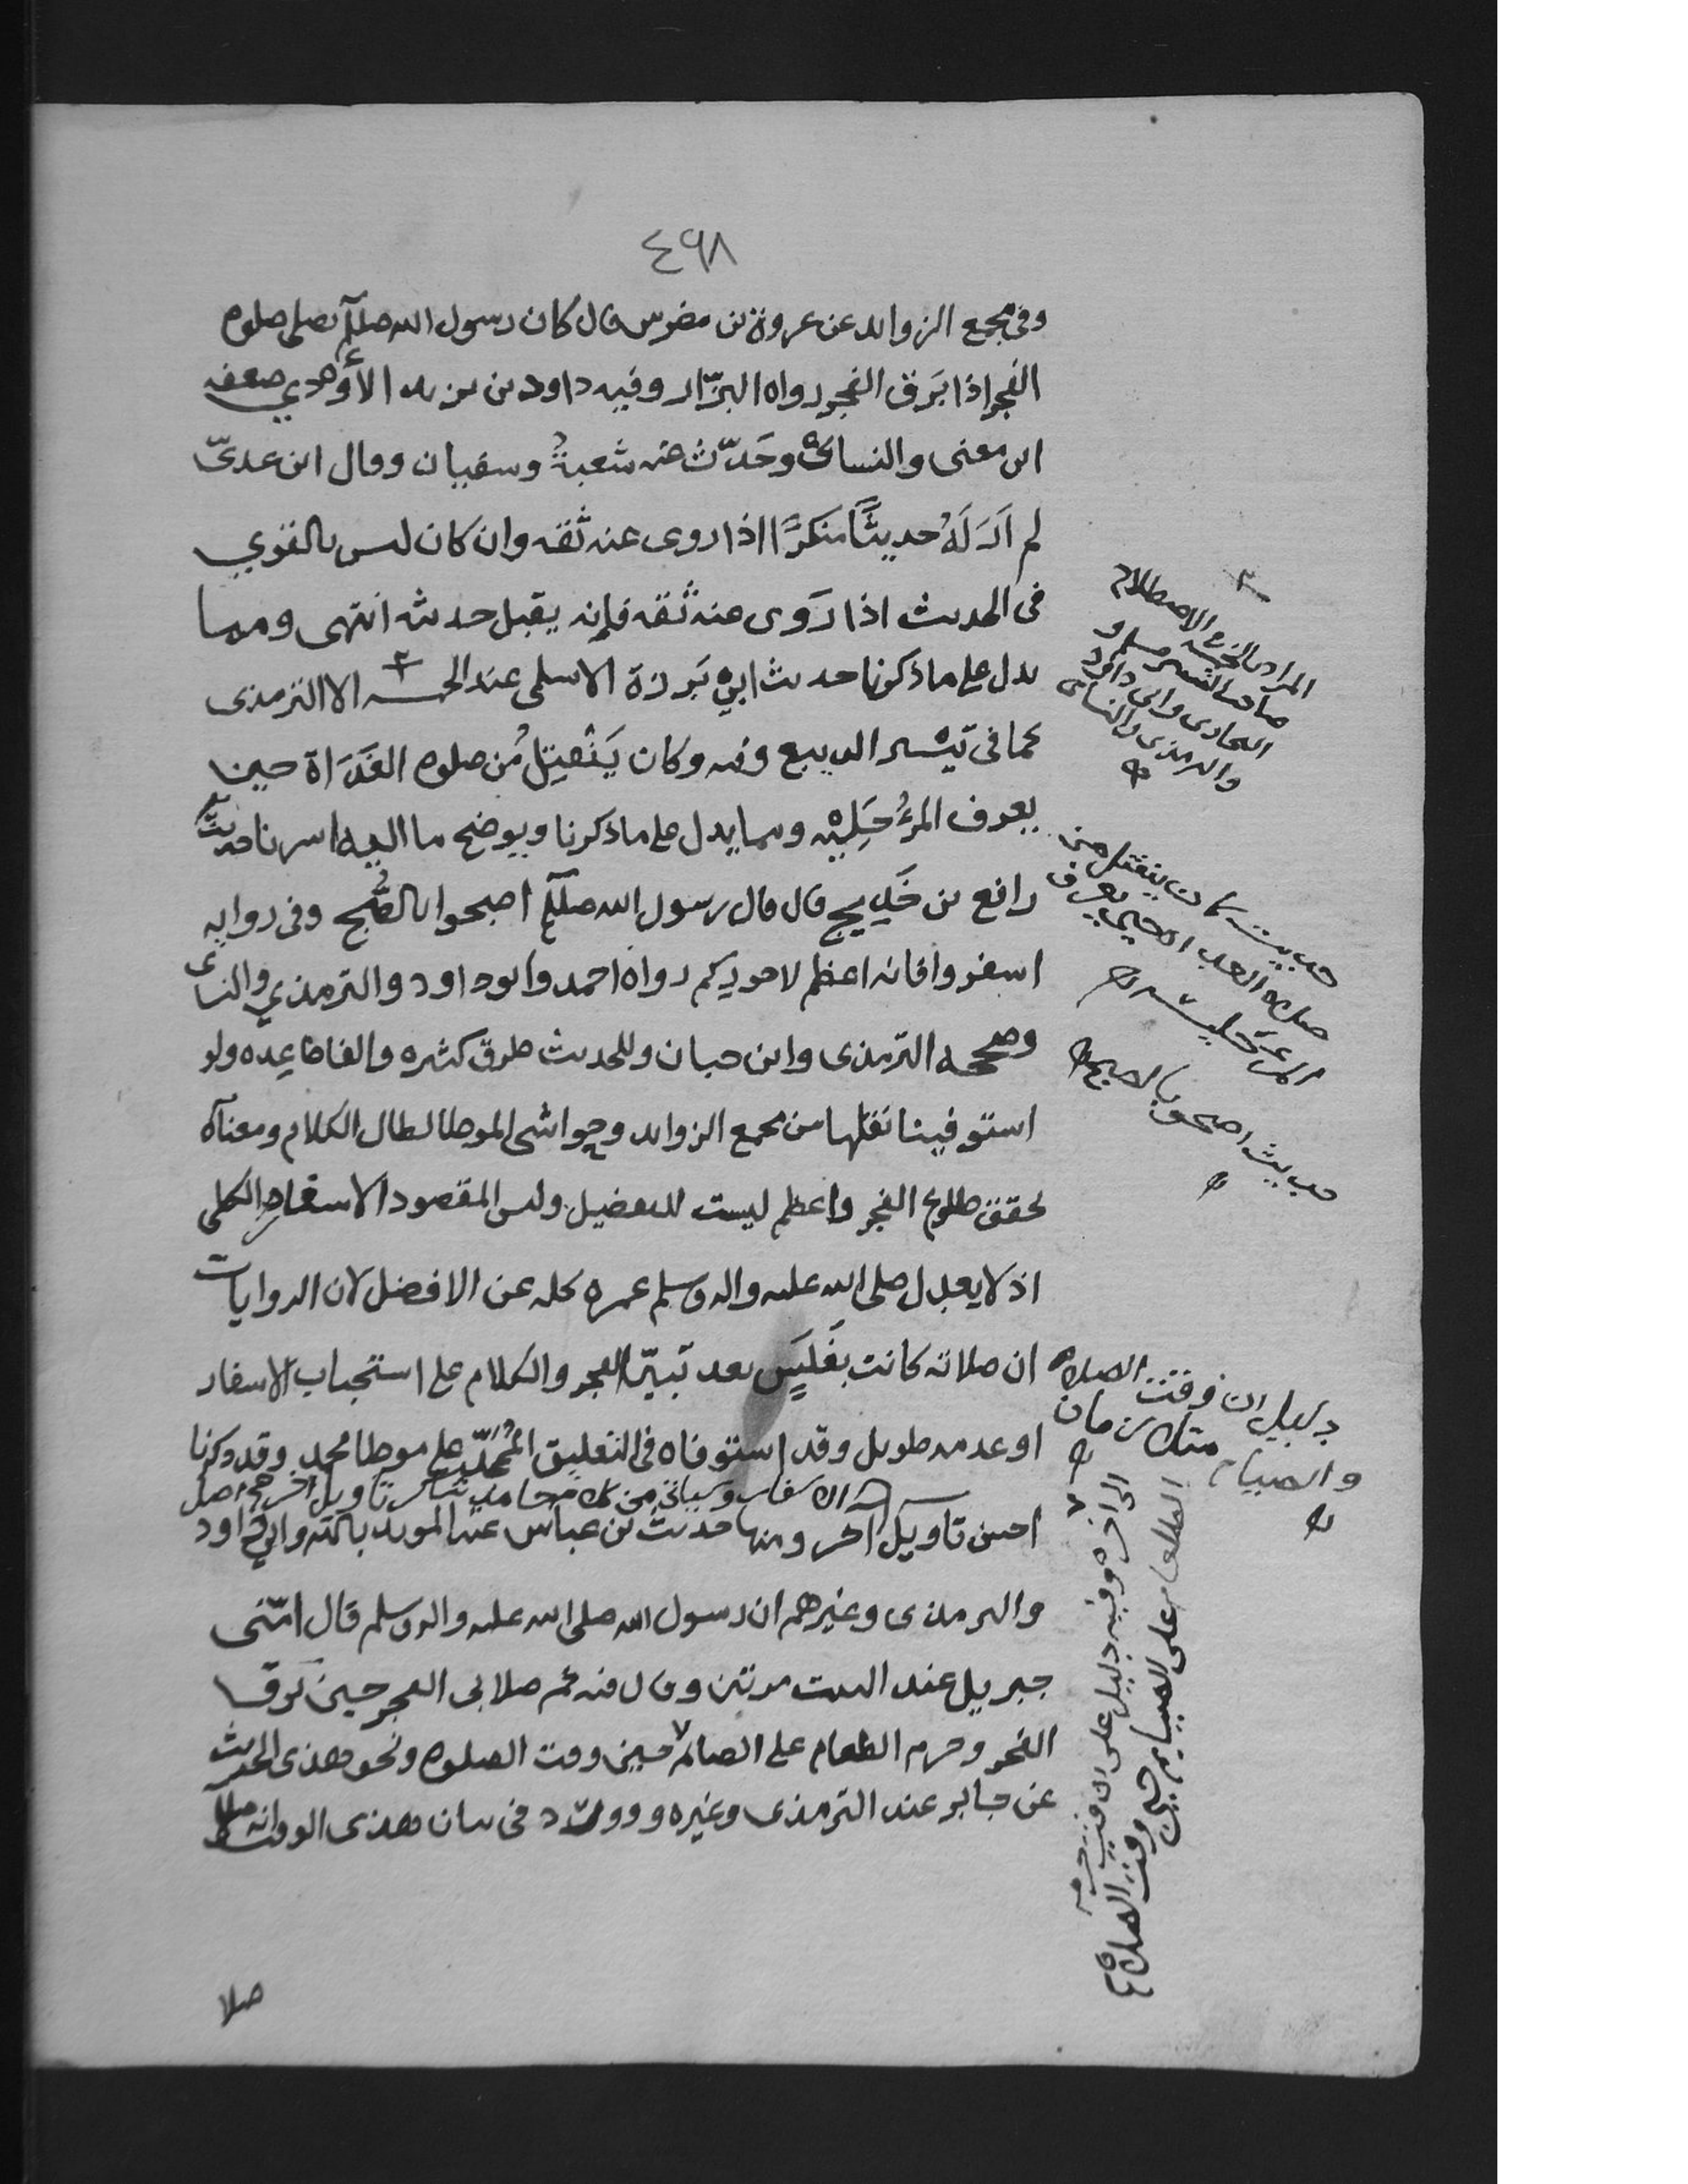 ٤٩٨
وفى مجمع الزوايد عن عروة بن مضرس قال كان رسول الله صللم يصلى صلوه
الفجر اذا بَرق الفجر رواه البزّار وفيه داود بن يزيد الأودي ضعفه
ابن معنى والنسائى وحَدّث عنه شعبةُ وسفيان وقال ابن عدىّ
لم اَرَ لَهُ حديثًا منكرًا اذا روى عنه ثقه وان كان ليس بالقوي
فى الحديث اذا رَوى عنه ثقه فإنه يقبل حديثه انتهى ومما
يدل على ما ذكرنا حديث ابي بَرزة الاسلمى عند الخمسه الا الترمذى
كما فى تيسير الديبع وفيه وكان يَنْفتِل مُن صلوه الغَدَاة حين
يعرف المرءُ جَلِيْسه ومما يدل على ما ذكرنا ويوضح ما اليه اشرنا حديثُ
رافع بن خَدِيج قال قال رسول الله صللم اصبحوا بالصُّبح وفى روايه
اسفروا فانه اعظم لاجوركم رواه احمد وابو داود والترمذي والنسائى
وصححه الترمذى وابن حبان وللحديث طرق كثيره والفاظ عِده ولو
استوفينا نقلها من مجمع الزوايد وحواشى الموطا لطال الكلام ومعناه
تحقق طلوع الفجر واعظم ليست للتفضيل وليس المقصود الاسفار الكلى
اذ لا يعدل صلى الله عليه واله وسلم عمره كله عن الافضل لان الروايات
ان صلاته كانت بغَلَسٍ بعد تبيّن الفجر والكلام على استحباب الاسفار
او عدمه طويل وقد استوفاه فى التعليق المُمَجّد على موطا محمد وقد ذكرنا
الاسفار وسياتى من كلام تاويل اخر صح اصل
احسن تاويل اخر ومنها حديث بن عباس عند المويد بالله وابي داود
والترمذى وغيرهم ان رسول الله صلى الله عليه واله وسلم قال امّنى
جبريل عند البيت مرتين وقال فيه ثم صلا بى الفجر حين برق
الفجر وحرم الطعام على الصائم حين وقت الصلوه ونحو هذى الحديث
عن جابر عند الترمذى وغيره و وورد فى بيان هذى الوقت
صلا
المراد بالخمسه فى الاصطلاح
صاحبا مسلم و
البخارى وابى داود
والترمذى والنسائى
حديث كان ينفتل من
صلاه الغداه حين يعرف
المرء جليسه
حديث اصبحوا بالصبح
دليل ان وقت الصلاه
والصيام متلازمان
الى اخره وفيه دليل على ان
الطعام على الصيام حين وقت الصلاة